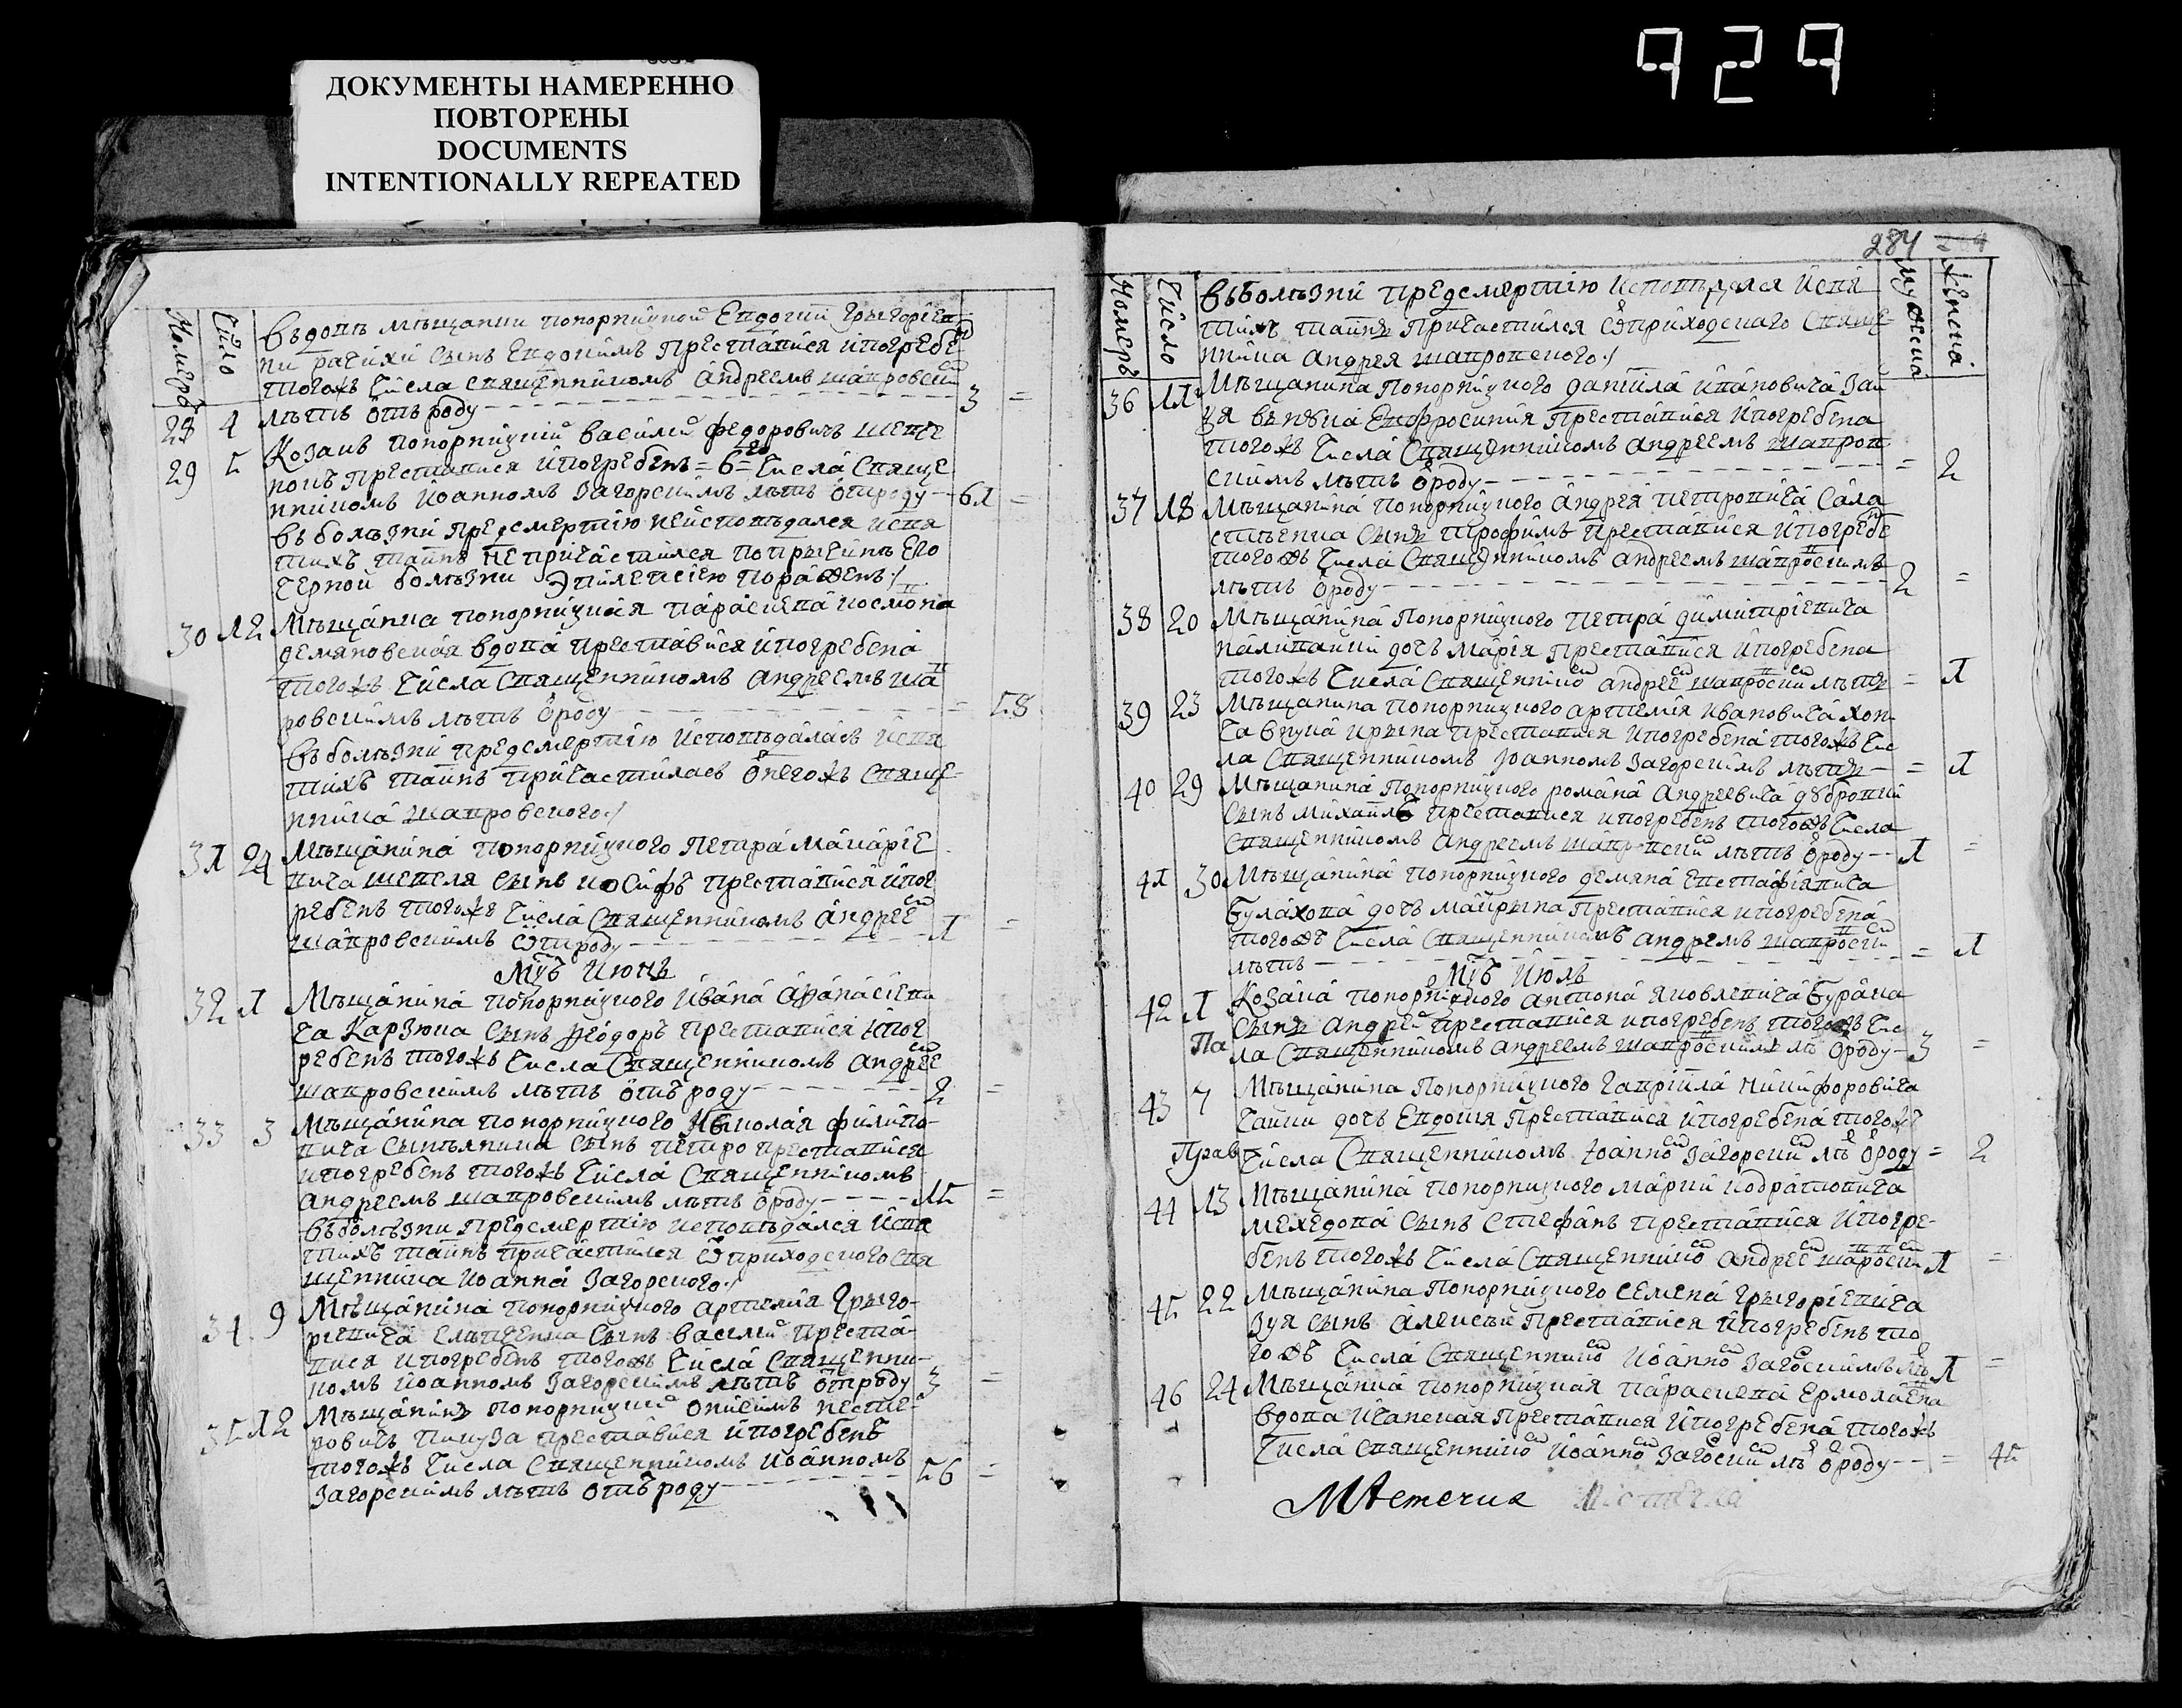 929
ДОКУМЕНТЫ НАМЕРЕННО
ПОВТОРЕНЫ
DOCUMENTS
INTENTIONALLY REPEATED
Номеръ
Число
Вдовѣ мѣщанки поворницкой Евдокии Григориев
сынъ Евдокимъ преставися и погребе
тогожъ числа священникомъ Андреемъ Шапровски
28 4 лѣтъ отъ роду 3 =
29 5 Козакъ поворницкий Василий Федорович Шепе
преставися и погребенъ =6= числа свяще
нникомъ Иоанномъ Загорскимъ лѣтъ от роду 61 =
въ болѣзни пред смертию не исповѣдался и свя
тихъ таинъ не причастился по причинѣ его
черной болѣзни Эпилепсиею пораженъ
30 12 Мѣщанка поворницкая Параскева Космова
Демяновская вдова преставися и погребена
тогожъ числа священникомъ Андреемъ Шап
ровскимъ лѣтъ ѿ роду = 58
въ болѣзни пред смертию исповѣдалась и свя
тихъ таинъ причастилась ѿ негожъ свяще
нника Шапровского
31 24 Мѣщанина поворницкого Петра Макарие
вича Шепеля сынъ Иосифъ преставися и пог
ребенъ тогожъ числа священникомъ Андрее
Шапровскимъ ѿт роду 1 =
Мцъ Июнь
32 1 Мѣщанина поворницкого Ивана Афанасиеви
ча Карзюка сынъ Феодоръ преставися и пог
ребенъ тогожъ числа священникомъ Андрее
Шапровскимъ лѣтъ отъ роду 2 =
33 3 Мѣщанина поворницкого Николая Филипо-
вича сынъ Петро преставися
и погребенъ тогожъ числа священникомъ
Андреемъ Шапровскимъ лѣтъ ѿ роду 15 =
въ болѣзни пред смертию исповѣдался и свя
тихъ таинъ причастился ѿ приходского свя
щенника Иоанна Загорского
34 9 Мѣщанина поворницкого Артемия Григо-
риевича сынъ Василий преста-
вися и погребенъ тогожъ числа священни-
комъ Иоанномъ Загорскимъ лѣтъ от роду 3 =
35 12 Мѣщанинъ поворницкий Онисимъ Несте-
ровичъ преставися и погребенъ
тогожъ числа священникомъ Иоанномъ
Загорскимъ лѣтъ отъ роду 56 =
284
Номеръ
Число
Мужеска
Женска
въ болѣзни пред смертию исповѣдался и свя
тихъ таинъ причастился ѿ приходского свяще-
нника Андрея Шапровского
36 11 Мѣщанина поворницкого Данiила Ивановича Зай
ця внука Евфросиния преставися и погребена
тогожъ числа священникомъ Андреемъ Шапров
скимъ лѣтъ ѿ роду = 2
37 18 Мѣщанина поворницкого Андрея Петровича
сынъ Трофимъ преставися и погребе
тогожъ числа священникомъ Андреемъ Шапроскимъ
лѣтъ ѿ роду 2 =
38 20 Мѣщанина поворницкого Петра Димитриевича
дочь Мария преставися и погребена
тогожъ числа священнико Андрее Шапроски лѣтъ = 1
39 23 Мѣщанина поворницкого Артемия Ивановича
внука Ирына преставися и погребена тогожъ чис
ла священникомъ Иоанномъ Загорскимъ лѣтъ = 1
40 29 Мѣщанина поворницкого Романа Андреевича
сынъ Михаилъ преставися и погребенъ тогожъ числа
священникомъ Андреемъ Шапровски лѣтъ ѿ роду 1 =
41 30 Мѣщанина поворницкого Демяна Евстафиявича
Булахова дочь Майрына преставися и погребена
тогожъ числа священникомъ Андремъ Шапроски
лѣтъ = 1
Мцъ Июль
42 1 Козака поворницкого Антона Яковлевича Бурака
сынъ Андрей преставися и погребенъ тогожъ чис
ла священникомъ Андреемъ Шапроскимъ лѣ ѿ роду 3 =
43 7 Мѣщанина поворницкого Гавриила Никифоровича
дочь Евдокия преставися и погребена тогожъ
числа священникомъ Иоанно Загорски лѣ ѿ роду = 2
44 13 Мѣщанина поворницкого
сынъ Стефанъ преставися и погре-
бенъ тогожъ числа священнико Андрее Шароски 1 =
45 22 Мѣщанина поворницкого Семена Григориевича
Зуя сынъ Алексѣй преставися и погребенъ то
гожъ числа священнико Иоанно Загоскимъ лѣ 1 =
46 24 Мѣщанка поворницкая Параскева Ермолаева
вдова преставися и погребена тогожъ
числа священнико Иоанно Загоски лѣ ѿ роду = 45